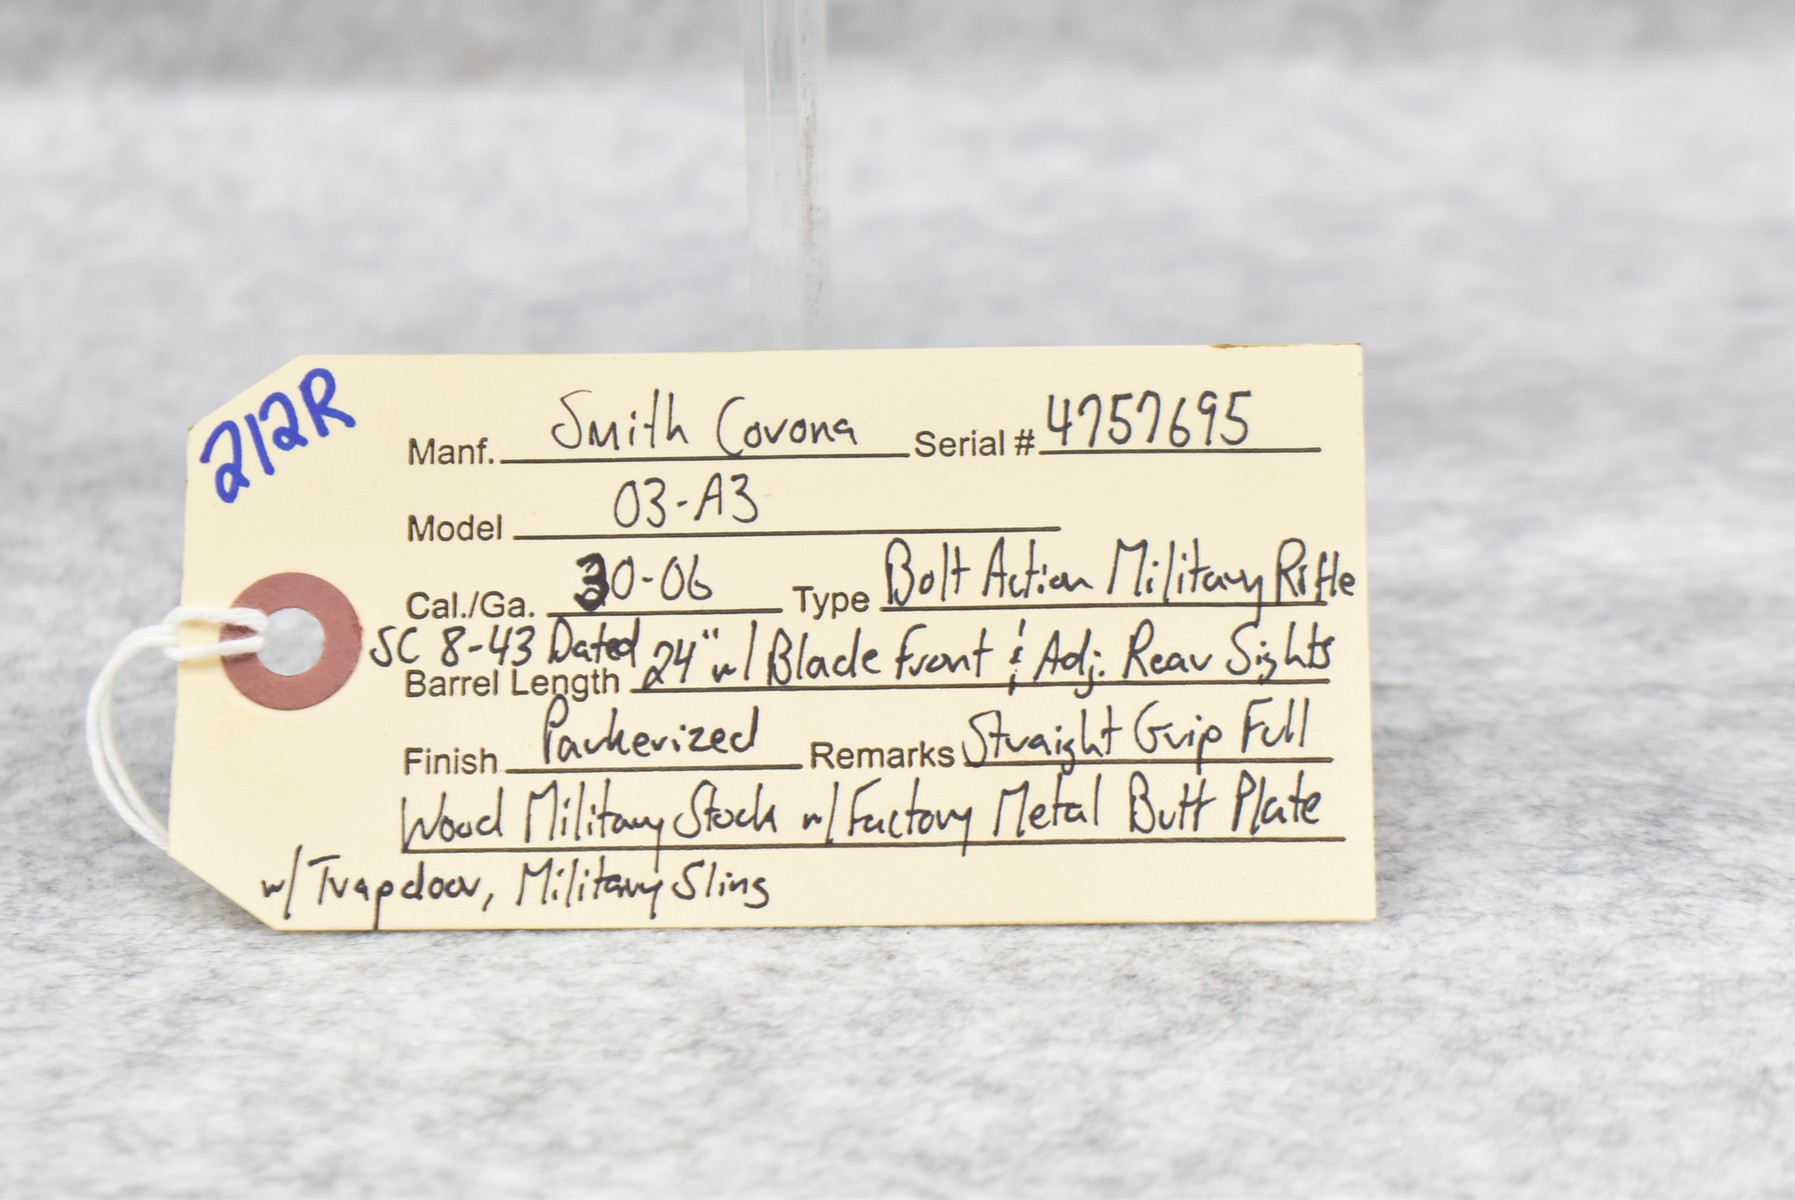 212R
Manf. Smith Corona Serial # 4757695
Model 03-A3
Cal./Ga. 30-06 Type Bolt Action Military Rifle
SC 8-43 Dated
Barrel Length 24" w/ Blade Front & Adj. Rear Sights
Finish Parkerized Remarks Straight Grip Full
Wood Military Stock w/ Factory Metal Butt Plate
w/ Trapdoor, Military Sling